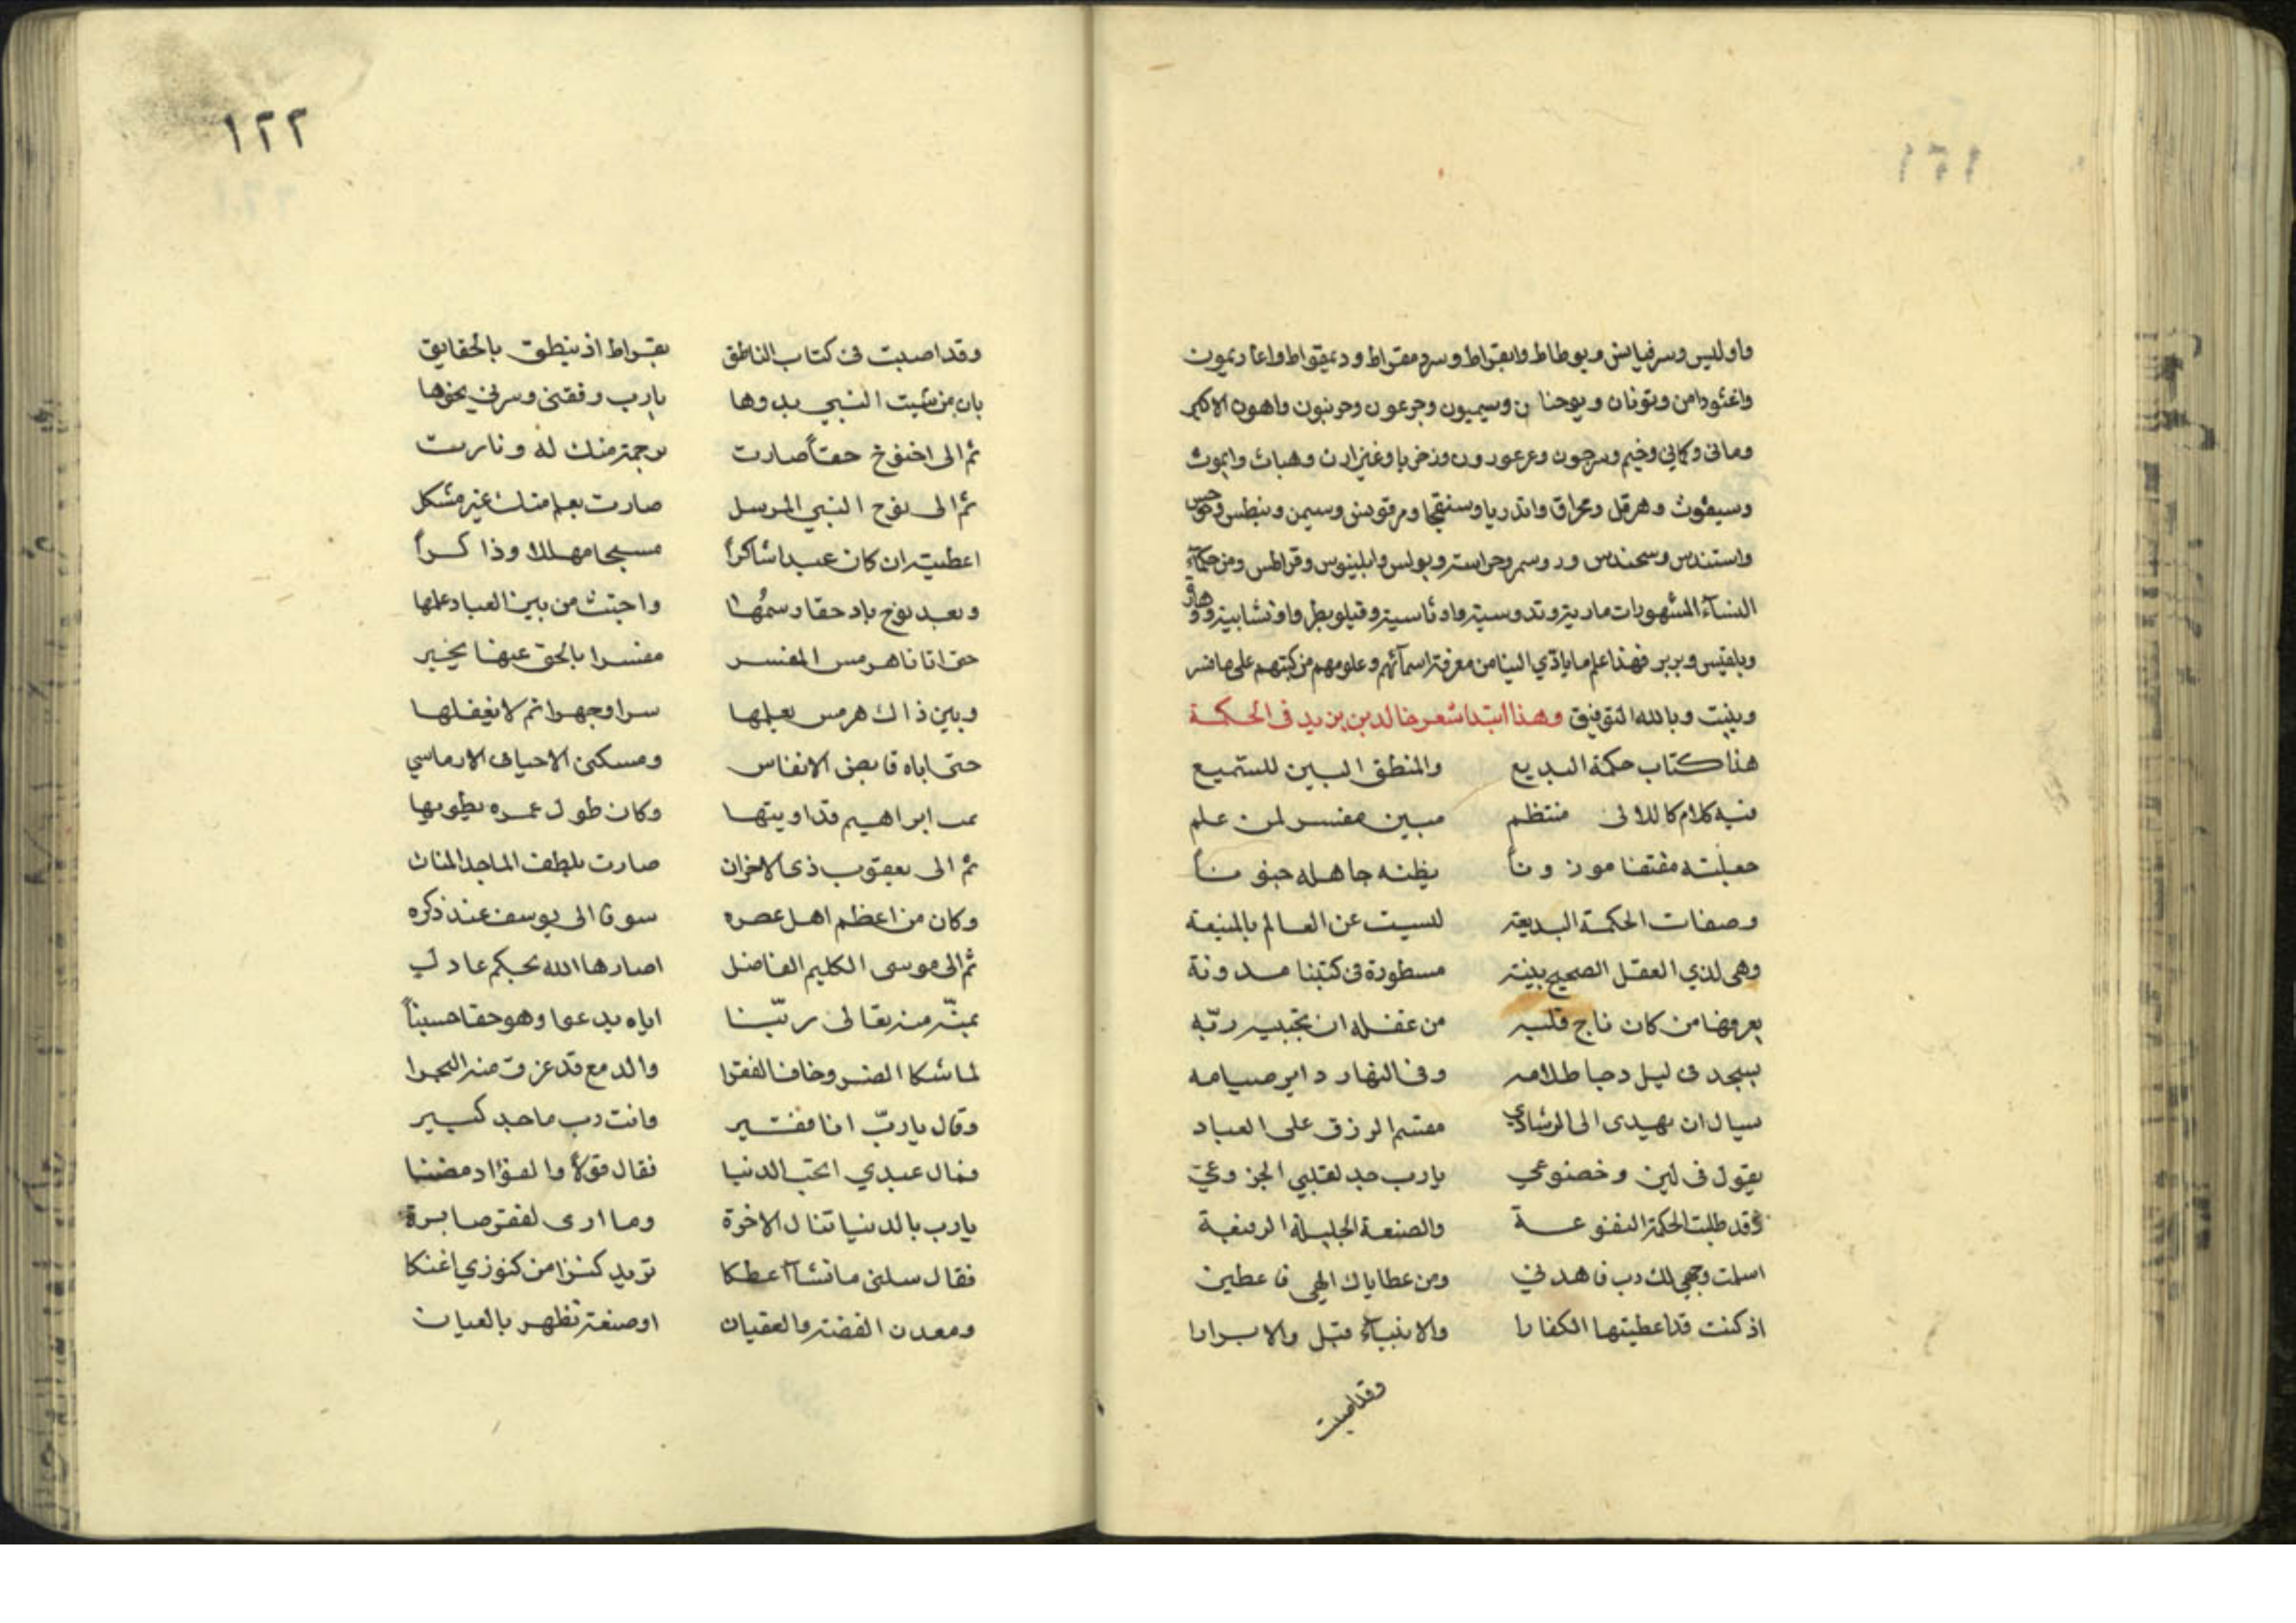 واوليس وسرفيايس وبوطاط وابقراط وسرد مقراط ودعيقواط واغاديمون
واغثودامن وتونان ويوحنا ن وسيميون وجرعون وحرنبون واهون الاكبر
ومانى وكمانى وخيم وسرجون وعرعورون وهبات وايموث
وسيفوث وهرقل وعراق واندريا وسنقجا ومرقونس وسيمن وبنطس
واستندس وسحندس ودوسم وبولس وابلينوس وقراطس ومن حكمآء
النسآء المشهورات مارية وتدوسية
وبلقيس وبربر فهذا علم ما يأدّي الينا من معرفة اسمآئهم وعلومهم من كتبهم على ما فسر
وبينت وبالله التوفيق وهذا ابتدا شعر خالد بن يزيد فى الحكمة
هذا كتاب حكمة البديع والمنطق البين للسميع
فيه كلام كاللالى منتظم مبين مفسر لمن علم
جعلته مقتفا موزونا يظنه جاهله جنونا
وصفات الحكمة البديعة لسيت عن العالم بالمنيعة
وهى لذي العقل الصحيح بينة مسطورة فى كتبنا مدونة
يعرفها من كان ناج قلبه من غفله ان يجتبيه ربّه
يسجد فى ليل دجا ظلامه وفى النهار دايم صيامه
سيال ان يهدى الى الرشاد مقسم الرزق على العباد
يقول فى لين وخضوعي يارب جد لقلبي الجزوعي
وقد طلبت الحكمة والصنعة الجليلة الرفيعة
اسلمت وجهي لك رب فاهدني ومن عطاياك الهي فاعطين
اذ كنت قد اعطيتها الكفارا والانبيآء قبل والابرارا
وقد اصبت
١٢٢
وقد اصبت فى كتاب الناطق بقراط اذ ينطق بالحقايق
بان من شيت النبي بدوها يارب وفقنى وسرنى نحوها
ثم الى اخنوخ حقاً صارت برحمة منك له ونارت
ثم الى نوح النبي المرسل صارت بعلم منك غير مشكل
اعطيته ان كان عبدا شاكراً مسبحا مهللا وذاكراً
وبعد نوح باد حقا رسمُها واجتث من بين العباد علمها
حتى اتانا هرمس المفسر مفسرا بالحق عنها يخبر
وبين ذاك هرمس بعلمها سرا وجهرا ثم لا نغفلها
حتى اباه قابض الانفاس ومسكن الاحياء فى الارماسي
ابراهيم قد اويتها وكان طول عمره يطويها
ثم الى يعقوب ذى الاحزان صارت بلطف الماجد المنان
وكان من اعظم اهل عصره سوقا الى يوسف عند ذكره
ثم الى موسى الكليم الفاضل اصارها الله بحكم عادل
بمنّه منه تعالى ربّنا اياه يدعوا وهو حقا حسبناً
لما شكا الضر وخاف الفقرا والدمع قد غرق منه النحرا
وقال ياربّ انا فقير وانت رب ماجد كبير
فقال عبدي اتحب الدنيا فقال قولا والفؤاد مضنا
يارب بالدنيا تنال الاخرة وما ارى لفقر صابرة
فقال سلنى ما تشآ اعطكا تريد كنزا من كنوزي اغنكا
ومعدن الفضة والعقيان او صنعة تظهر بالعيان